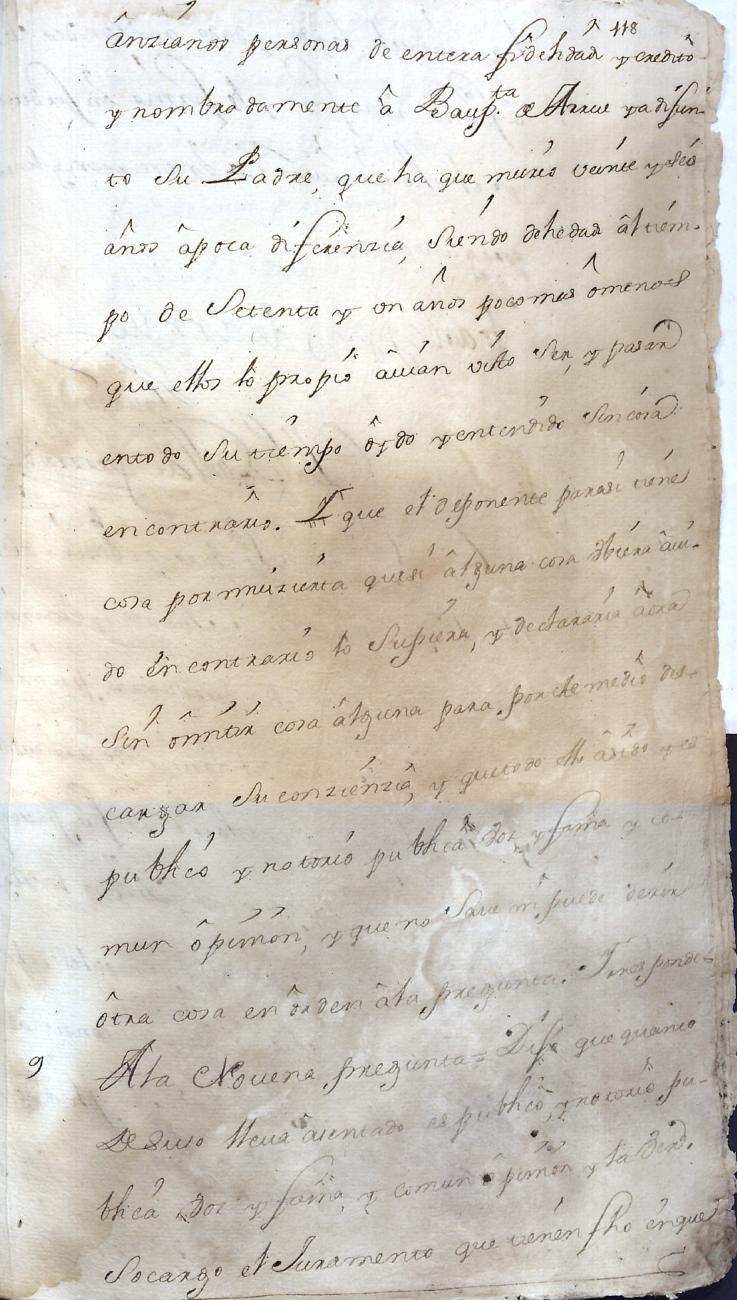 118
ânzianos personas de entera fidelidad y credito
y nombradamente â Baup.ta de Arrue ya difun-
to su Padre, que ha que murio veinte y seis
años âpoca diferenzia, siendo dehedad âl tiem-
po de Setenta y un años poco mas ômenos
que ellos lo propio âuian visto ser, y pasar
entodo su tiempo ôydo y entendido sin cosa
encontrario. Y que el deponente parasi tiene
cosa por muzierta quesi âlguna cosa Ubiera âui-
do ên contrario lo Supiera, y declararia âora
Sin ômitir cosa âlguna para por este medio des-
cargar su conzienzia, y quetodo ello âsido y es
publico y notorio publica voz y fama y co-
mun ôpinion, y que no save ni puede dezir
ôtra cosa en ôrden âla pregunta. Y responde
9 Ala Novena pregunta= Dijo que quanto
De Suso lleua âsentado es publico, y notorio pu-
blica voz y fama, y comun ôpinion y la verd.
Socargo el Juramento que tienen fho ênque